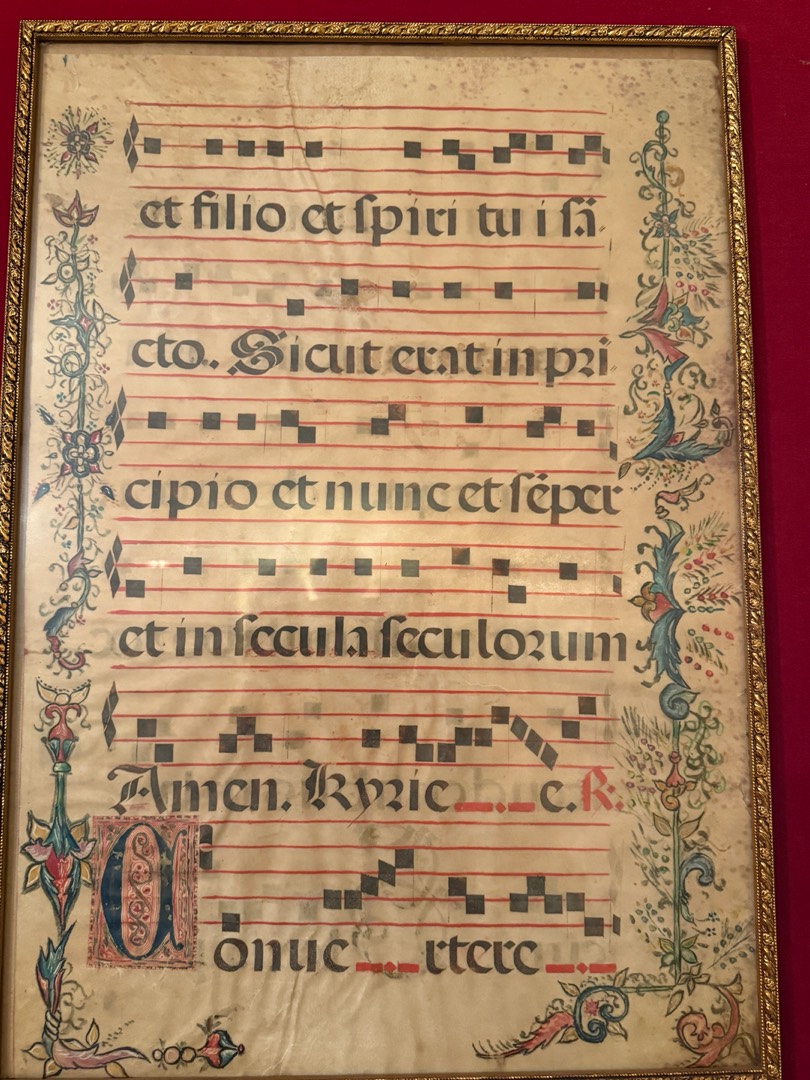 et filio et ſpiri tu i ſã
cto. Sicut erat in pri
cipio et nunc et ſẽper
et in ſecula ſeculorum
Amen. Kyrie e. R:
Conue rtere